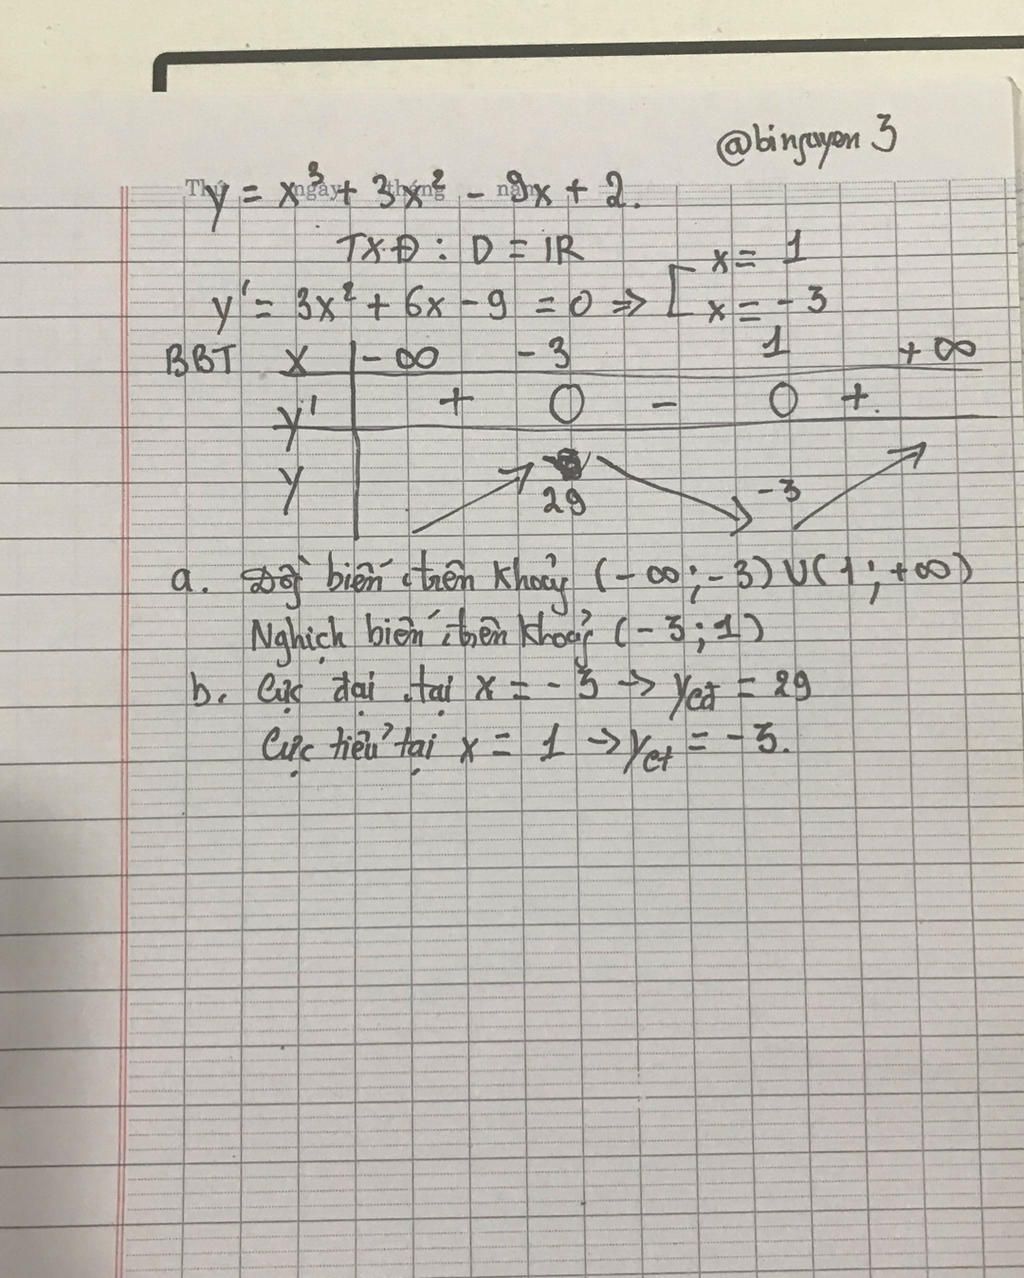 @binguyen 3
Thứ ngày tháng năm
y = x³ + 3x² - 9x + 2.
TXĐ : D = IR
x = 1
y' = 3x² + 6x - 9 = 0 => [ x = -3
BBT x -∞ -3 1 +∞
y' + 0 - 0 +
y 29 -3
a. Đồng biến trên khoảng (-∞; -3) U (1; +∞)
Nghịch biến trên khoảng (-3; 1)
b. Cực đại tại x = -3 → ycđ = 29
Cực tiểu tại x = 1 → yct = -3.